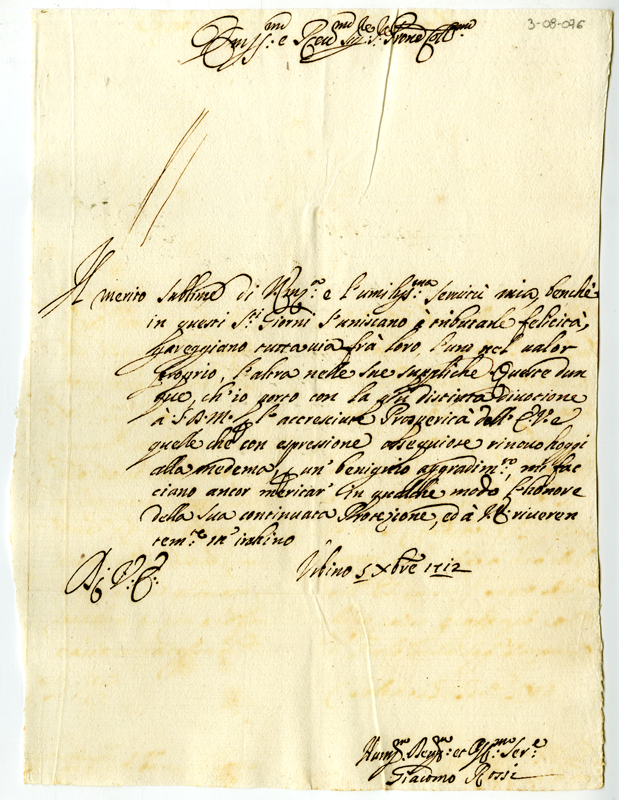 3-08-096
Em.mo e Rev.mo Sig.r Sig.r P.rone Coll.mo
Il merito sublime di V. Em.za e l'umiliss.ma servitù mia, benche
in questi S.ti Giorni s'uniscano à tributarle felicità,
gareggiano tuttavia frà loro, l'uno nel valor
proprio, l'altra nelle sue suppliche. Queste dun
que, ch'io porgo con la più distinta divozione
à S. D. M. per l'accresciute Prosperità dell' E. V. e
quelle che con espressione ossequiose rinuovo hoggi
alla medema, per un' benigno aggradim.to, mi fac
ciano ancor meritar' in qualche modo l'honore
della sua continuata Protezione, ed à V. E. riveren
tem.te m'inchino
Di V. E. Urbino 5 Xbre 1712
Humiss.mo Dev.mo et Obl.mo Ser.e
Giacomo Rossi